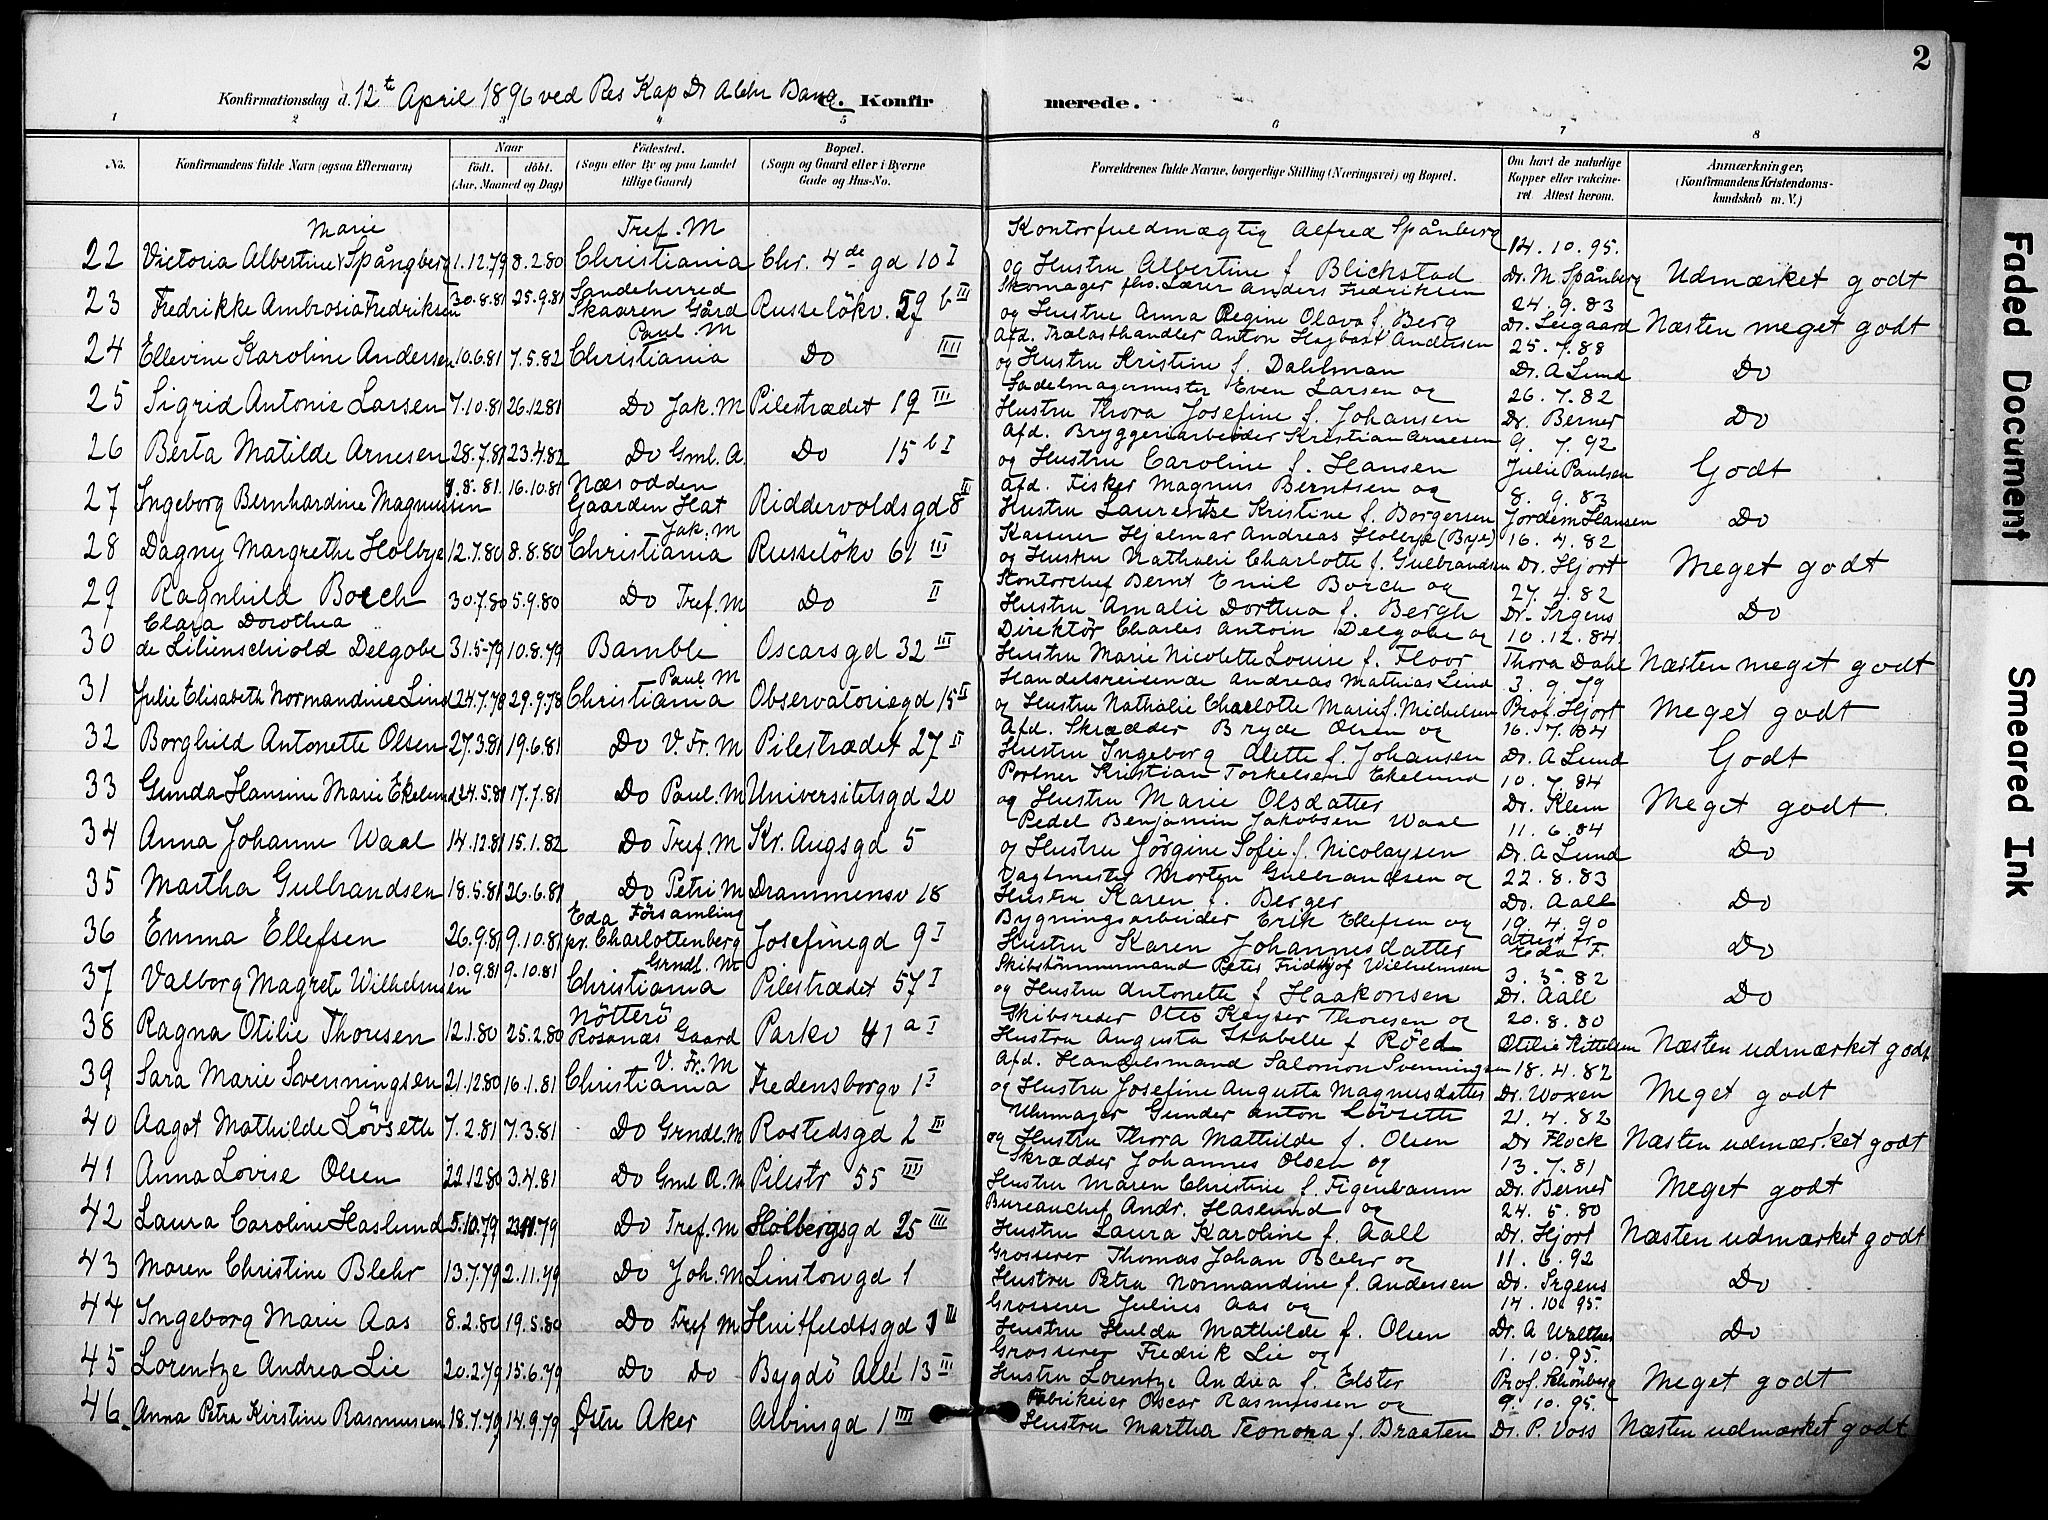 2
Konfirmationsdag d. 12te April 1896 ved Res Kap Dr Bang C. Konfirmerede.
1 2 3 4 5 6 7 8
No. Konfirmandens fulde Navn (ogsaa Efternavn) Naar født. døbt. (Aar, Maaned og Dag) Fødested. (Sogn eller By og paa Landet tillige Gaard) Bopæl. (Sogn og Gaard eller i Byerne Gade og Hus-No. Forældrenes fulde Navne, borgerlige Stilling (Næringsvei) og Bopæl. Om havt de naturlige Kopper eller vakcineret Attest herom. Anmærkninger, (Konfirmandens Kristendomskundskab m. V.)
Marie Tref. M Kontorfuldmægtig Alfred Spånberg 14.10.95.
22 Victoria Albertine Spångberg 1.12.79 8.2.80 Christiania Chr. 4de gd 10 I og Hustru Albertine f. Blichstad Dr. M Spånberg Udmærket godt
Sandeherred Skomager fhv. Lærer Anders Fredriksen 24.9.83
23 Fredrikke Ambrosia Fredriksen 30.8.81 25.9.81 Skaaren Gård Russeløkv. 59 b III og Hustru Anna Regine Olava f. Berg Dr. Seigaard Næsten meget godt
Paul. M Afd. Trælasthandler Anton Andersen 25.7.88
24 Ellevine Karoline Andersen 10.6.81 7.5.82 Christiania Do IIII og Hustru Kristine f. Dahlman Dr. A Lund Do
Sadelmagermester Even Larsen og 26.7.82
25 Sigrid Antonie Larsen 7.10.81 26.12.81 Do Jak. M Pilestrædet 19 III Hustru Thora Josefine f. Johansen Dr. Berner Do
Afd. Bryggeriarbeider Kristian Arnesen 9.7.92
26 Berta Matilde Arnesen 28.7.81 23.4.82 Do Gml. A. Do 15 b I og Hustru Caroline f. Hansen Julie Paulsen Godt
Næsodden Afd. Fisker Magnus Berntsen og 8.9.83
27 Ingeborg Bernhardine Magnussen 9.8.81. 16.10.81 Gaarden Hat Riddervoldsgd 8 II Hustru Laurentze Kristine f. Borgersen Jordem Hansen Do
Jak. M Kasserer Hjalmar Andreas Holbye (Bye) 16.4.82
28 Dagny Margrethe Holbye 12.7.80 8.8.80 Christiania Russeløkv 61 III og Hustru Nathalie Charlotte f. Gulbrandsen Dr. Hjort Meget godt
Kontorchef Bernt Emil Borch og 27.4.82
29 Ragnhild Borch 30.7.80 5.9.80 Do Tref. M Do II Hustru Amalie Dorthea f. Bergh Dr. Irgens Do
Clara Dorothea Direktör Charles Antoin Delgobe og 10.12.84
30 de Lilienschiold Delgobe 31.5.79 10.8.79 Bamble Oscarsgd 32 III Hustru Marie Nicolette Louise f. Floor Thora Dahl Næsten meget godt
Paul M Handelsreisende Andreas Mathias Lind 3.9.79
31 Julie Elisabeth Normandine Lind 24.7.78 29.9.78 Christiania Observatoriegd 15 II og Hustru Nathalie Charlotte Marie f. Michelsen Prof. Hjort Meget godt
Afd. Skrædder Bryde Olsen og 16.7.84
32 Borghild Antonette Olsen 27.3.81 19.6.81 Do V. Fr. M Pilestrædet 27 II Hustru Ingeborg Alette f. Johansen Dr. A Lund Godt
Portner Kristian Torkelsen Ekelund 10.7.84
33 Gunda Hansine Marie Ekelund 24.5.81 17.7.81 Do Paul. M Universitetsgd 20 og Hustru Marie Olsdatter Dr. Klem Meget godt.
Pedel Benjamin Jakobsen Waal 11.6.84
34 Anna Johanne Waal 14.12.81 15.1.82 Do Tref. M Kr. Augsgd 5 og Hustru Jörgine Sofie f. Nicolaysen Dr. A Lund Do
Vagtmester Morten Gulbrandsen og 22.8.83
35 Martha Gulbrandsen 18.5.81 26.6.81 Do Petri M Drammensv 18 Hustru Karen f. Berger Dr. Aall Do
Eda Församling Bygningsarbeider Erik Ellefsen og 19.4.90
36 Emma Ellefsen 26.9.81 9.10.81 pr. Charlottenberg Josefinegd 9 I Hustru Karen Johannesdatter Attest fr. Eda F. Do
Grndl. M Skibstömmermand Peter Fridtjof Wilhelmsen 3.5.82
37 Valborg Magrete Wilhelmsen 10.9.81 9.10.81 Christiania Pilestrædet 57 I og Hustru Antonette f Haakonsen Dr. Aall Do
Nötterö Skibsreder Otto Keyser Thoresen og 20.8.80
38 Ragna Otilie Thoresen 12.1.80 25.2.80 Rosanæs Gaard Parkv 41 a I Hustru Augusta Isabelle f Röed Otilie Kittelsen Næsten udmærket godt
V. Fr. M Afd. Handelsmand Salomon Svenningsen 18.4.82
39 Sara Marie Svenningsen 21.12.80 16.1.81 Christiania Fredensborgv 1 I og Hustru Josefine Augusta Magnusdatter Dr. Woxen Meget godt
Uhrmager Gunder Anton Lövseth 21.4.82
40 Aagot Mathilde Lövseth 7.2.81 7.3.81 Do Grndl. M Rostedsgd 2 III og Hustru Thora Mathilde f. Olsen Dr Flock Næsten udmærket godt
Skrædder Johannes Olsen og 13.7.81
41 Anna Lovise Olsen 22.12.80 3.4.81 Do Gml A. M Pilestr 55 IIII Hustru Maren Christine f. Figenbaum Dr. Berner Meget godt
Bureauchef Andr. Haslund og 24.5.80
42 Laura Caroline Haslund 5.10.79 23.11.79 Do Tref. M Holbergsgd 25 IIII Hustru Laura Karoline f. Aall Dr. Hjort Næsten udmærket godt
Grosserer Thomas Johan Blehr og 11.6.92
43 Maren Christine Blehr 13.7.79 2.11.79 Do Joh. M Linstowgd 1 Hustru Petra Normandine f. Andersen Dr. Irgens Do
Grosserer Julius Aas og 14.10.95.
44 Ingeborg Marie Aas 8.2.80 19.5.80 Do Tref M Huitfeldtsgd III Hustru Hulda Mathilde f. Olsen Dr. A Walther Do
Grosserer Fredrik Lie og 1.10.95.
45 Lorentze Andrea Lie 20.2.79 15.6.79 Do Do Bygdö Allé 13 III Hustru Lorentze Andrea f. Elster Prof. Schönberg Meget godt
Fabrikeier Oscar Rasmussen og 9.10.95.
46 Anna Petra Kirstine Rasmussen 18.7.79 14.9.79 Østre Aker Arbinsgd 1 IIII Hustru Martha Teonora f. Braaten Dr. P. Voss Næsten udmærket godt
Faded Document
Smeared Ink